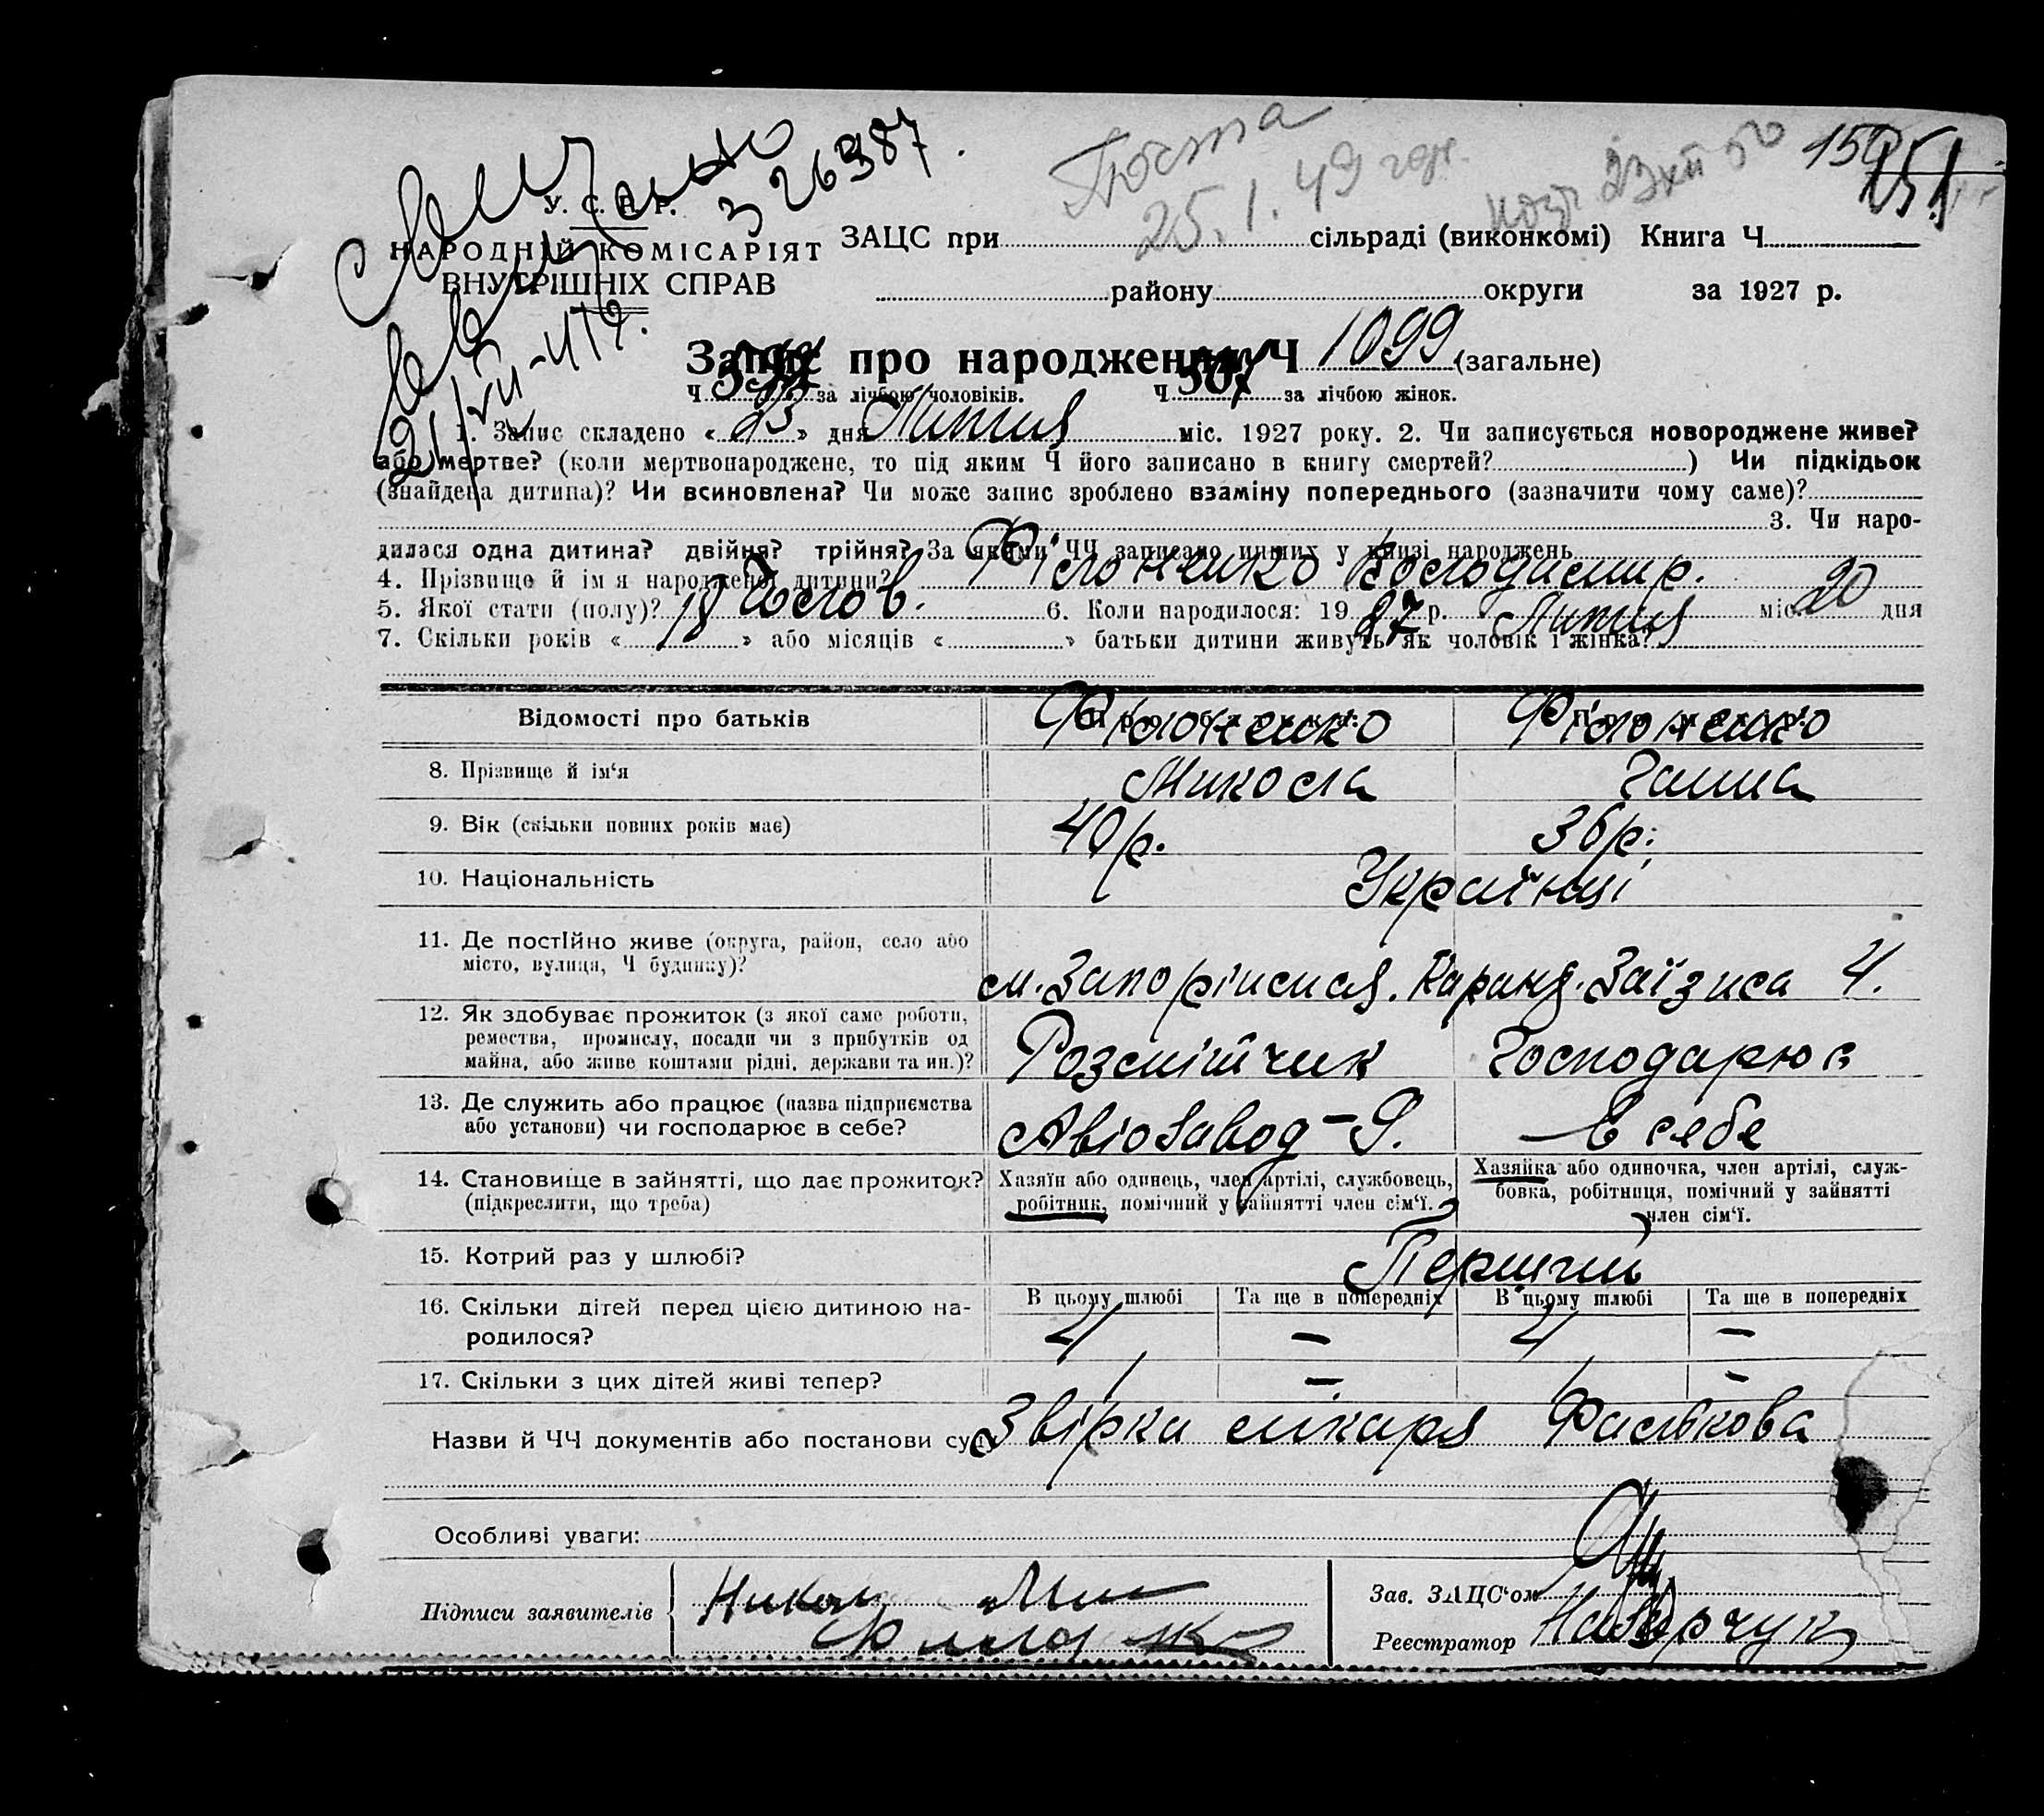 Пошта
25. I. 49
23 XII 50
151
З 26387.
У. С. Р. Р.
НАРОДНІЙ КОМІСАРІЯТ
ВНУТРІШНІХ СПРАВ
ЗАЦС при сільраді (виконкомі) Книга Ч
району округи за 1927 р.
Запис про народження Ч 1099 (загальне)
Ч за лічбою чоловіків. Ч 507 за лічбою жінок.
1. Запис складено « 23 » дня Липня міс. 1927 року. 2. Чи записується новороджене живе?
або мертве? (коли мертвонароджене, то під яким Ч його записано в книгу смертей? ) Чи підкідьок
(знайдена дитина)? Чи всиновлена? Чи може запис зроблено взаміну попереднього (зазначити чому саме)?
3. Чи наро-
дилася одна дитина? двійня? трійня? За якими ЧЧ записано инших у книзі народжень
4. Прізвище й ім я народженої дитини? Філоненко Володимир.
5. Якої стати (полу)? Чолов. 6. Коли народилося: 19 27 р. Липня міс. 20 дня
7. Скільки років « 18 » або місяців « » батьки дитини живуть як чоловік і жінка?
Відомості про батьків Філоненко Філоненко
8. Прізвище й ім‘я Микола Ганна
9. Вік (скільки повних років має) 40 р. 36 р.
10. Національність Українці
11. Де постійно живе (округа, район, село або
місто, вулиця, Ч будинку)?
м. Запоріжжя. Заїзна 4.
12. Як здобуває прожиток (з якої саме роботи,
ремества, промислу, посади чи з прибутків од
майна, або живе коштами рідні, держави та ин.)?
Розмітчик Господарює
13. Де служить або працює (назва підприємства
або установи) чи господарює в себе?
Авіозавод - 9. в себе
14. Становище в зайнятті, що дає прожиток?
(підкреслити, що треба)
Хазяїн або одинець, член артілі, службовець,
робітник, помічний у зайнятті член сім‘ї.
Хазяйка або одиночка, член артілі, служ-
бовка, робітниця, помічний у зайнятті
член сім‘ї.
15. Котрий раз у шлюбі? Перший
В цьому шлюбі Та ще в попередніх В цьому шлюбі Та ще в попередніх
16. Скільки дітей перед цією дитиною на-
родилося?
4 – 4 –
17. Скільки з цих дітей живі тепер? 1 – 1 –
Назви й ЧЧ документів або постанови суд Звірка лікаря Фалькова
Особливі уваги:
Підписи заявителів
Зав. ЗАЦС‘ом
Реєстратор